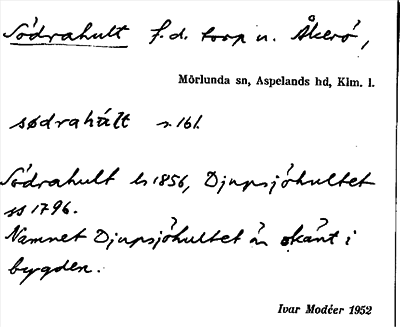 Södrahult f.d. torp u. Åkerö,
Mörlunda sn, Aspelands hd, Klm. l.
sødrahált s. 161.
Södrahult hs 1856, Djupsjöhultet
ss 1796.
Namnet Djupsjöhultet är okänt i
bygden.
Ivar Modéer 1952